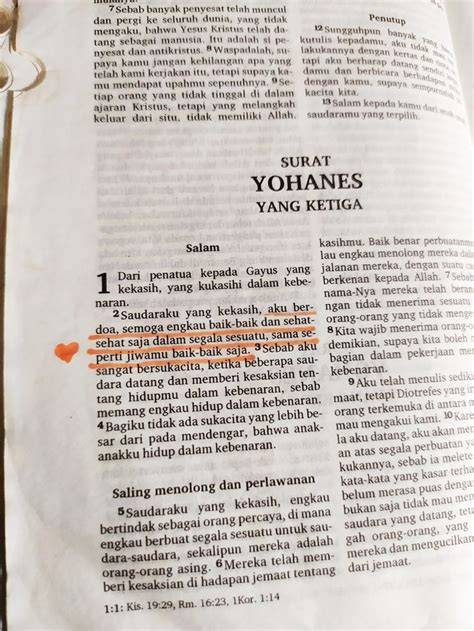 7Sebab banyak penyesat telah muncul
dan pergi ke seluruh dunia, yang tidak
mengaku, bahwa Yesus Kristus telah da-
tang sebagai manusia. Itu adalah si pe-
nyesat dan antikristus. 8Waspadalah, su-
paya kamu jangan kehilangan apa yang
telah kami kerjakan itu, tetapi supaya ka-
mu mendapat upahmu sepenuhnya. 9Se-
tiap orang yang tidak tinggal di dalam
ajaran Kristus, tetapi yang melangkah
keluar dari situ, tidak memiliki Allah.
Penutup
12Sungguhpun banyak yang
kutulis kepadamu, aku tidak
lakukannya dengan kertas dan
tapi aku berharap datang sendiri
damu dan berbicara berhadapan
dengan kamu, supaya sempurnalah
kacita kita.
13Salam kepada kamu dari anak-
saudaramu yang terpilih.
SURAT
YOHANES
YANG KETIGA
Salam
1 Dari penatua kepada Gayus yang
kekasih, yang kukasihi dalam kebe-
naran.
2Saudaraku yang kekasih, aku ber-
doa, semoga engkau baik-baik dan sehat-
sehat saja dalam segala sesuatu, sama se-
perti jiwamu baik-baik saja. 3Sebab aku
sangat bersukacita, ketika beberapa sau-
dara datang dan memberi kesaksian ten-
tang hidupmu dalam kebenaran, sebab
memang engkau hidup dalam kebenaran.
4Bagiku tidak ada sukacita yang lebih be-
sar dari pada mendengar, bahwa anak-
anakku hidup dalam kebenaran.
Saling menolong dan perlawanan
5Saudaraku yang kekasih, engkau
bertindak sebagai orang percaya, di mana
engkau berbuat segala sesuatu untuk sau-
dara-saudara, sekalipun mereka adalah
orang-orang asing. 6Mereka telah mem-
beri kesaksian di hadapan jemaat tentang
kasihmu. Baik benar perbuatan
lau engkau menolong mereka dalam
jalanan mereka, dengan suatu
berkenan kepada Allah. 7Sebab
nama-Nya mereka telah beran
tidak menerima sesuatu
orang-orang yang tidak mengenal
8Kita wajib menerima orang-
demikian, supaya kita boleh
bagian dalam pekerjaan me
kebenaran.
9Aku telah menulis sedikit
maat, tetapi Diotrefes yang in
orang terkemuka di antara me
la aku datang, aku akan mem
an atas segala perbuatan ya
kukannya, sebab ia melete
kata-kata yang kasar terha
belum merasa puas dengan
bukan saja tidak mau me
saudara yang datang, teta
orang-orang yang mau
reka dan mengucilkan
dari jemaat.
1:1: Kis. 19:29, Rm. 16:23, 1Kor. 1:14